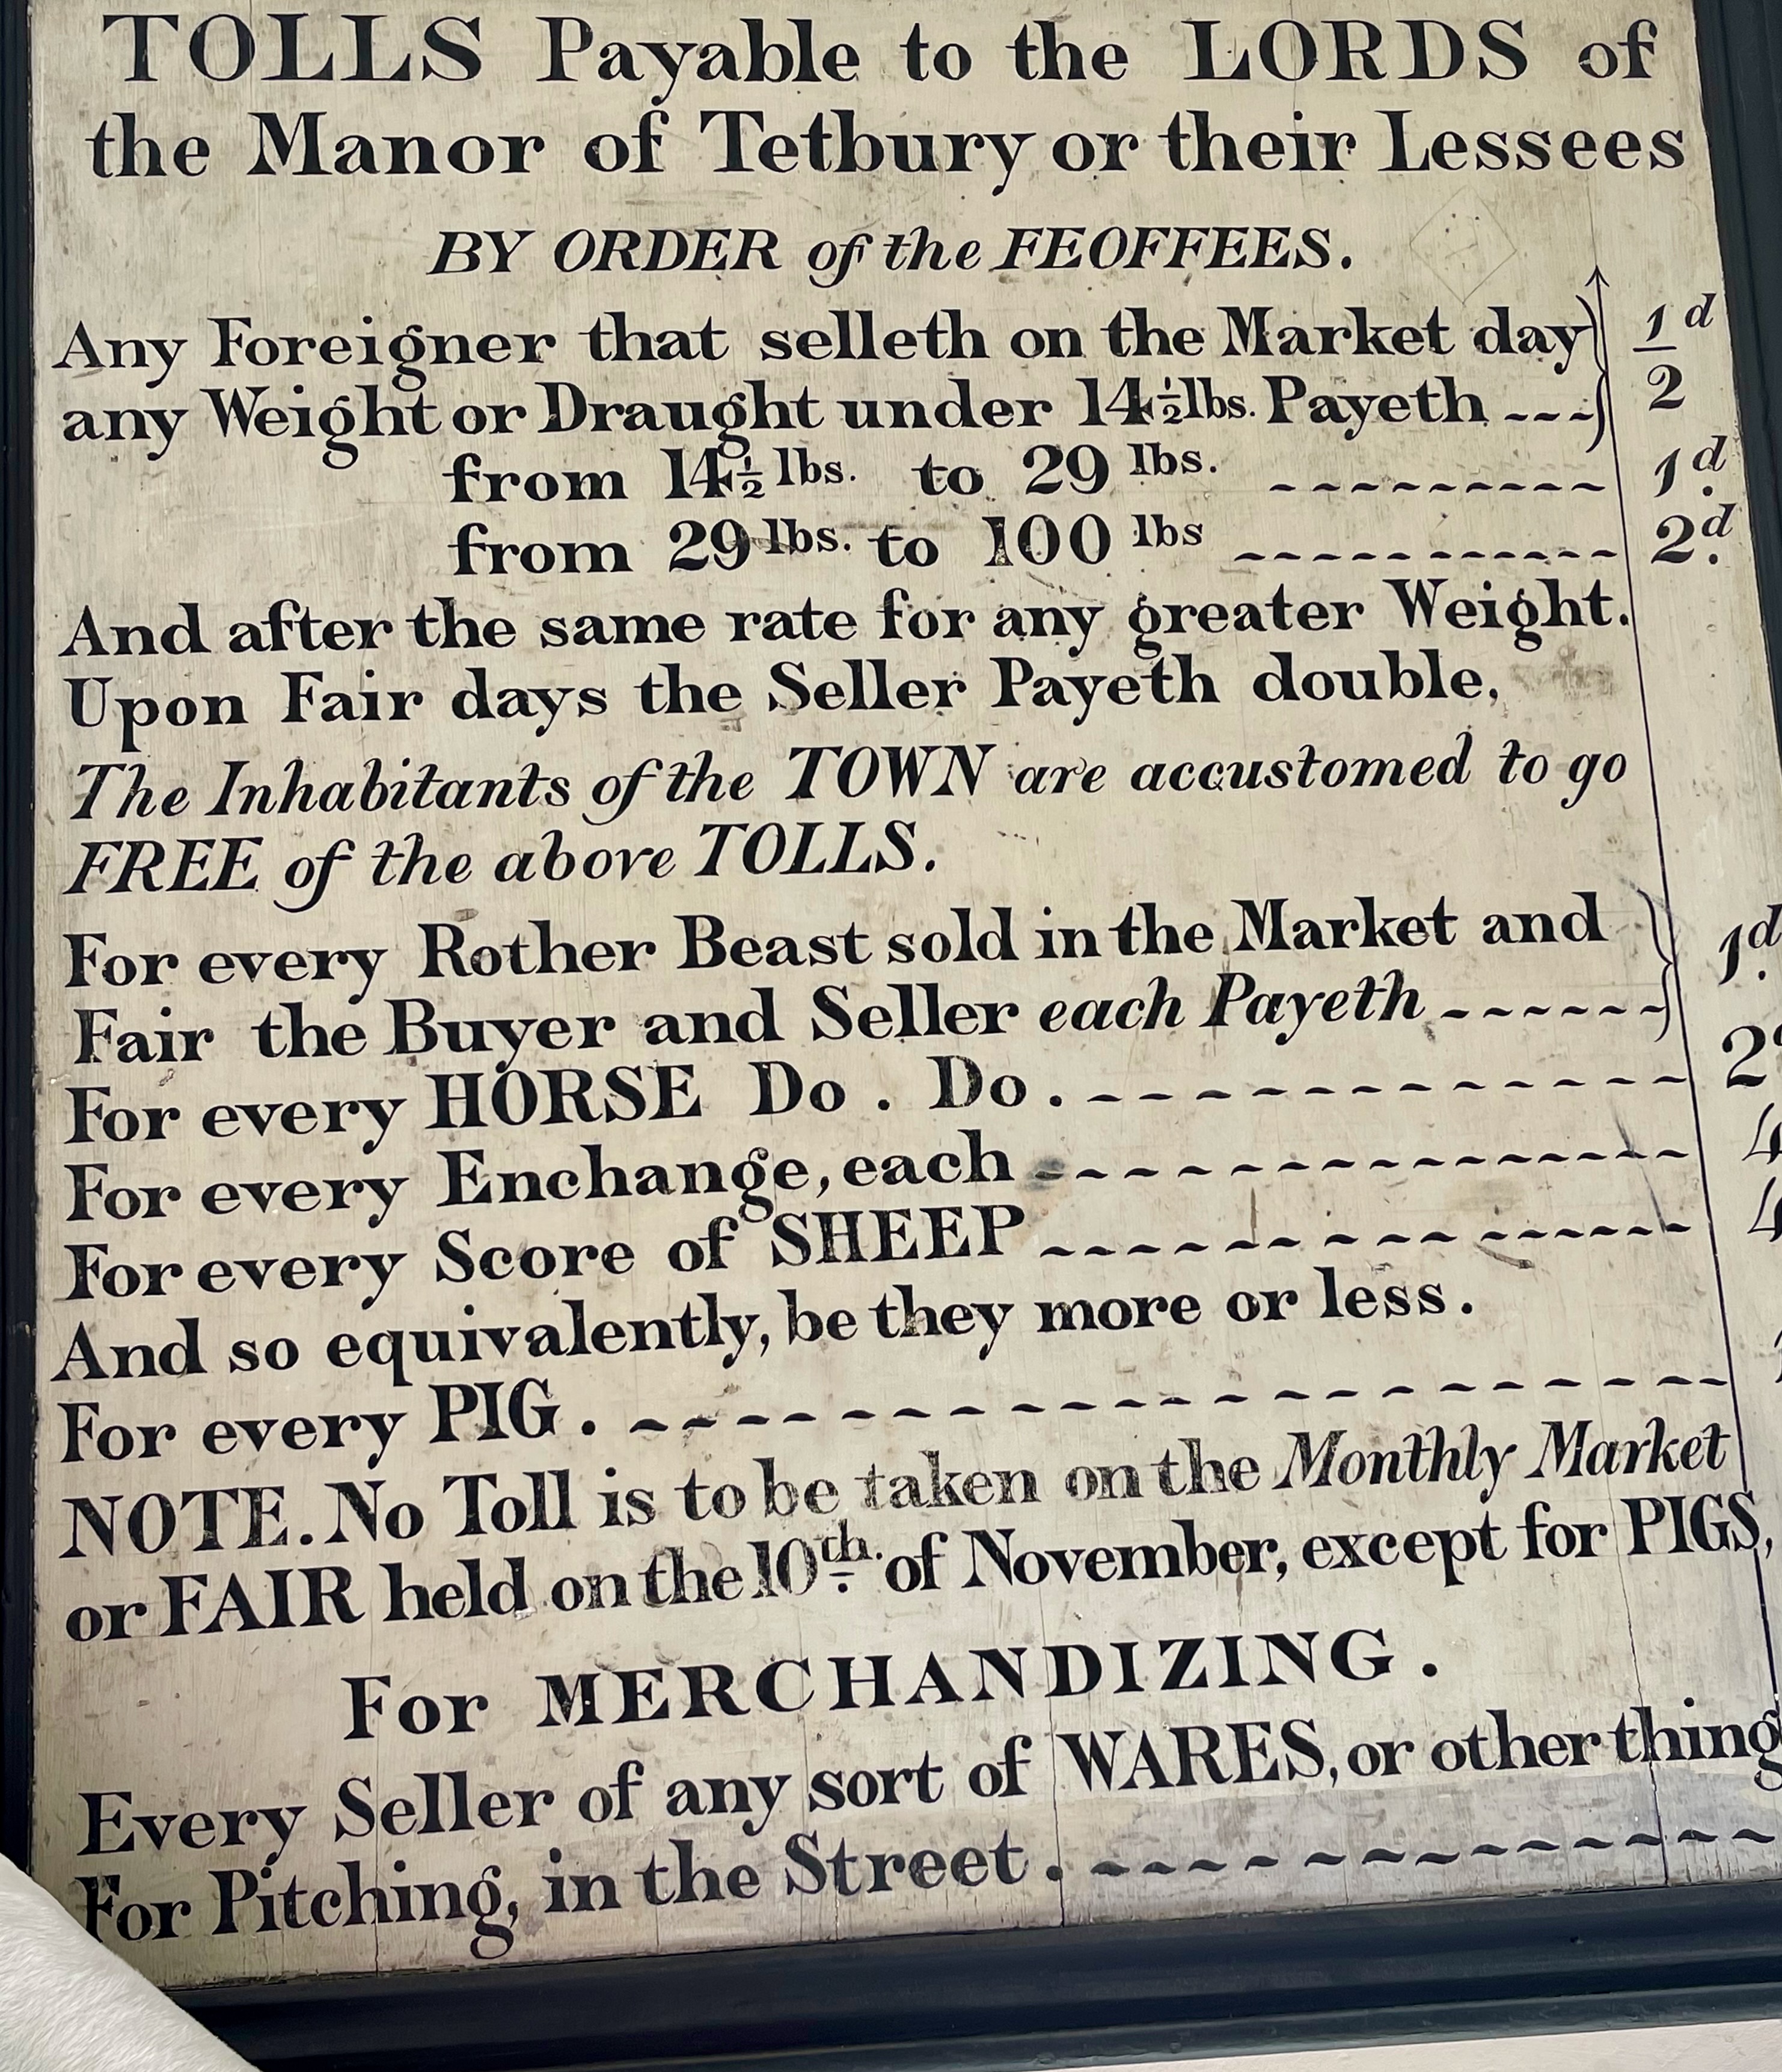 TOLLS Payable to the LORDS of
the Manor of Tetbury or their Lessees
BY ORDER of the FEOFFEES.
Any Foreigner that selleth on the Market day
any Weight or Draught under 14½lbs. Payeth --- ½d
from 14½ lbs. to 29 lbs. --------- 1d.
from 29 lbs. to 100 lbs ----------- 2d.
And after the same rate for any greater Weight.
Upon Fair days the Seller Payeth double,
The Inhabitants of the TOWN are accustomed to go
FREE of the above TOLLS.
For every Rother Beast sold in the Market and
Fair the Buyer and Seller each Payeth ------ 1d.
For every HORSE Do. Do. ------------ 2
For every Enchange, each -------------- 4
For every Score of SHEEP -------------- 4
And so equivalently, be they more or less.
For every PIG. --------------------
NOTE. No Toll is to be taken on the Monthly Market
or FAIR held on the 10th. of November, except for PIGS,
For MERCHANDIZING.
Every Seller of any sort of WARES, or other thing
For Pitching, in the Street. -------------